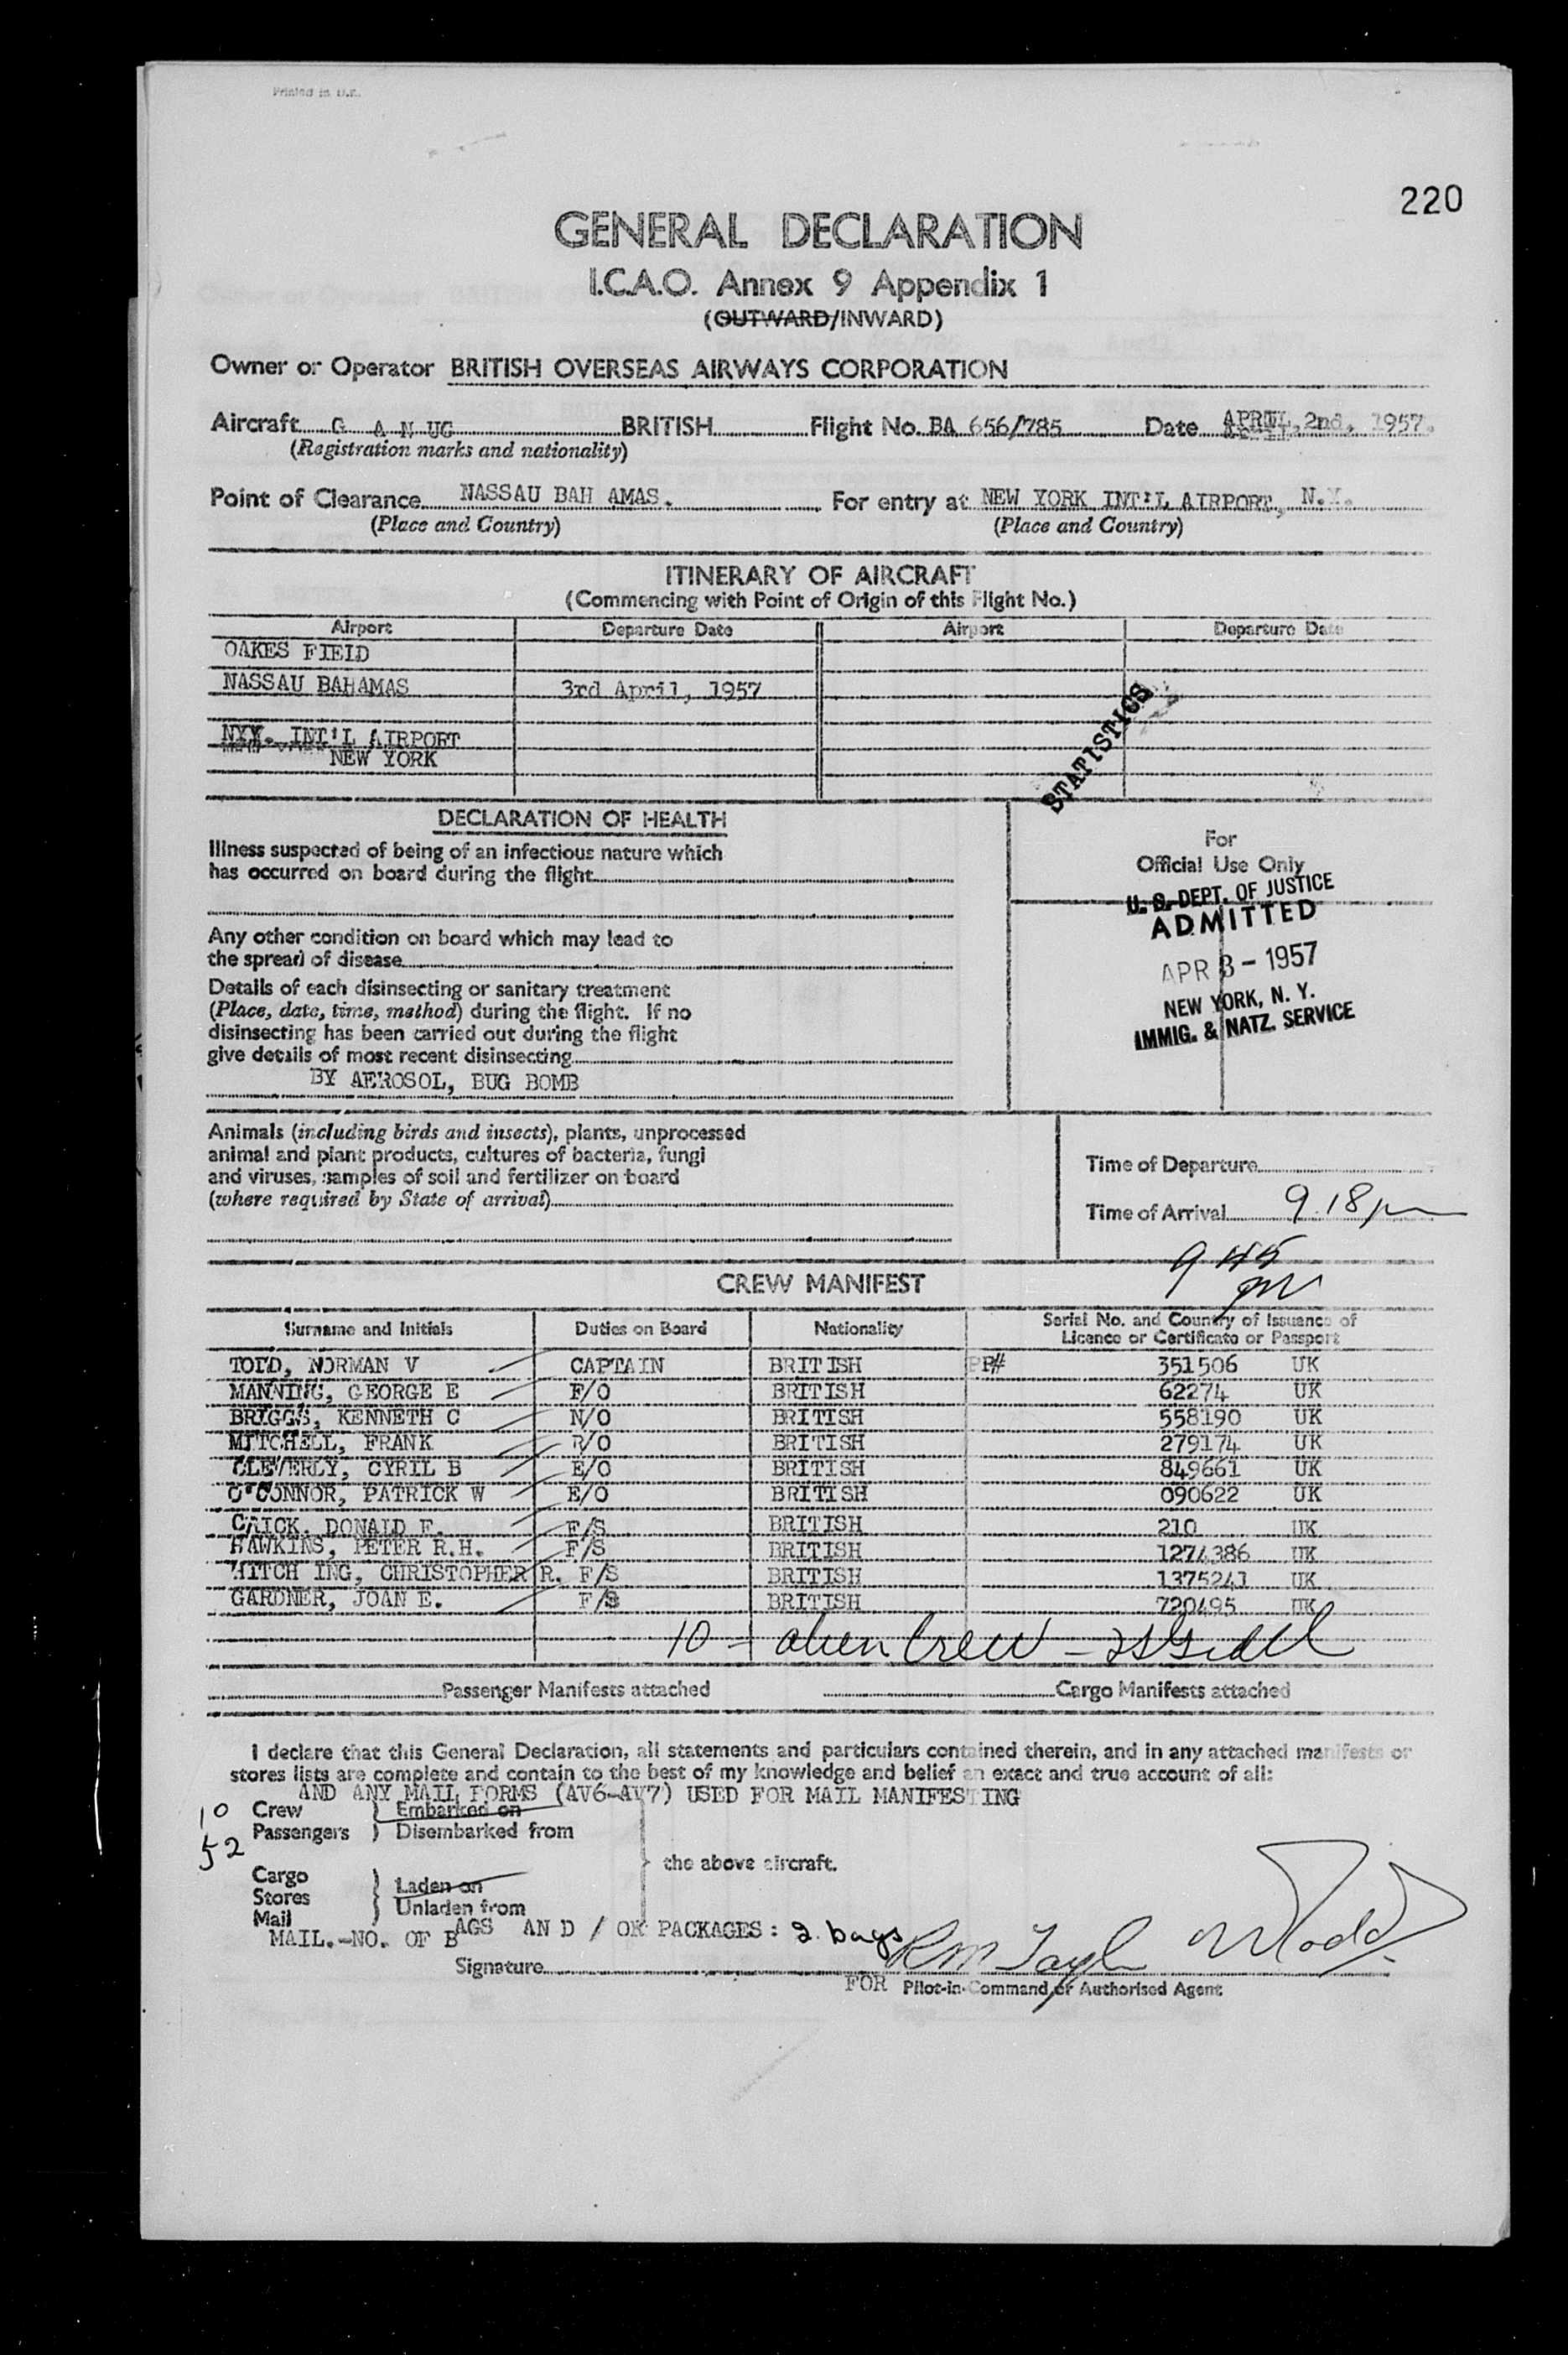 Printed in U.K.
220
GENERAL DECLARATION
I.C.A.O. Annex 9 Appendix 1
(OUTWARD/INWARD)
Owner or Operator BRITISH OVERSEAS AIRWAYS CORPORATION
Aircraft G A N UG BRITISH Flight No. BA 656/785 Date APRIL, 2nd, 1957.
(Registration marks and nationality)
Point of Clearance NASSAU BAH AMAS. For entry at NEW YORK INT'L AIRPORT, N.Y.
(Place and Country) (Place and Country)
ITINERARY OF AIRCRAFT
(Commencing with Point of Origin of this Flight No.)
Airport Departure Date Airport Departure Date
OAKES FIELD
NASSAU BAHAMAS 3rd April, 1957
STATISTICS
NYY. INT'L AIRPORT
NEW YORK
DECLARATION OF HEALTH
Illness suspected of being of an infectious nature which
has occurred on board during the flight
Any other condition on board which may lead to
the spread of disease
Details of each disinsecting or sanitary treatment
(Place, date, time, method) during the flight. If no
disinsecting has been carried out during the flight
give details of most recent disinsecting
BY AEROSOL, BUG BOMB
For
Official Use Only
U. S. DEPT. OF JUSTICE
ADMITTED
APR 3 - 1957
NEW YORK, N. Y.
IMMIG. & NATZ. SERVICE
Animals (including birds and insects), plants, unprocessed
animal and plant products, cultures of bacteria, fungi
and viruses, samples of soil and fertilizer on board
(where required by State of arrival)
Time of Departure
Time of Arrival 9.18 pm
9 45
pm
CREW MANIFEST
Surname and Initials Duties on Board Nationality Serial No. and Country of Issuance of
Licence or Certificate or Passport
TODD, NORMAN V CAPTAIN BRITISH PP# 351506 UK
MANNING, GEORGE E F/O BRITISH 62274 UK
BRIGGS, KENNETH C N/O BRITISH 558190 UK
MITCHELL, FRANK R/O BRITISH 279174 UK
CLEVERLY, CYRIL B E/O BRITISH 849661 UK
O'CONNOR, PATRICK W E/O BRITISH 090622 UK
CRICK, DONALD F. F/S BRITISH 210 UK
HAWKINS, PETER R.H. F/S BRITISH 1274386 UK
HITCH ING, CHRISTOPHER R. F/S BRITISH 1375241 UK
GARDNER, JOAN E. F/S BRITISH 720495 UK
10 - alien Crew -
Passenger Manifests attached Cargo Manifests attached
I declare that this General Declaration, all statements and particulars contained therein, and in any attached manifests or
stores lists are complete and contain to the best of my knowledge and belief an exact and true account of all:
AND ANY MAIL FORMS (AV6-AV7) USED FOR MAIL MANIFESTING
10 Crew Embarked on
52 Passengers Disembarked from
the above aircraft.
Cargo
Stores Laden on
Mail Unladen from
MAIL.-NO. OF BAGS AN D / OR PACKAGES: 2 bags
Signature RM Taylor NVTodd
FOR Pilot-in-Command or Authorised Agent